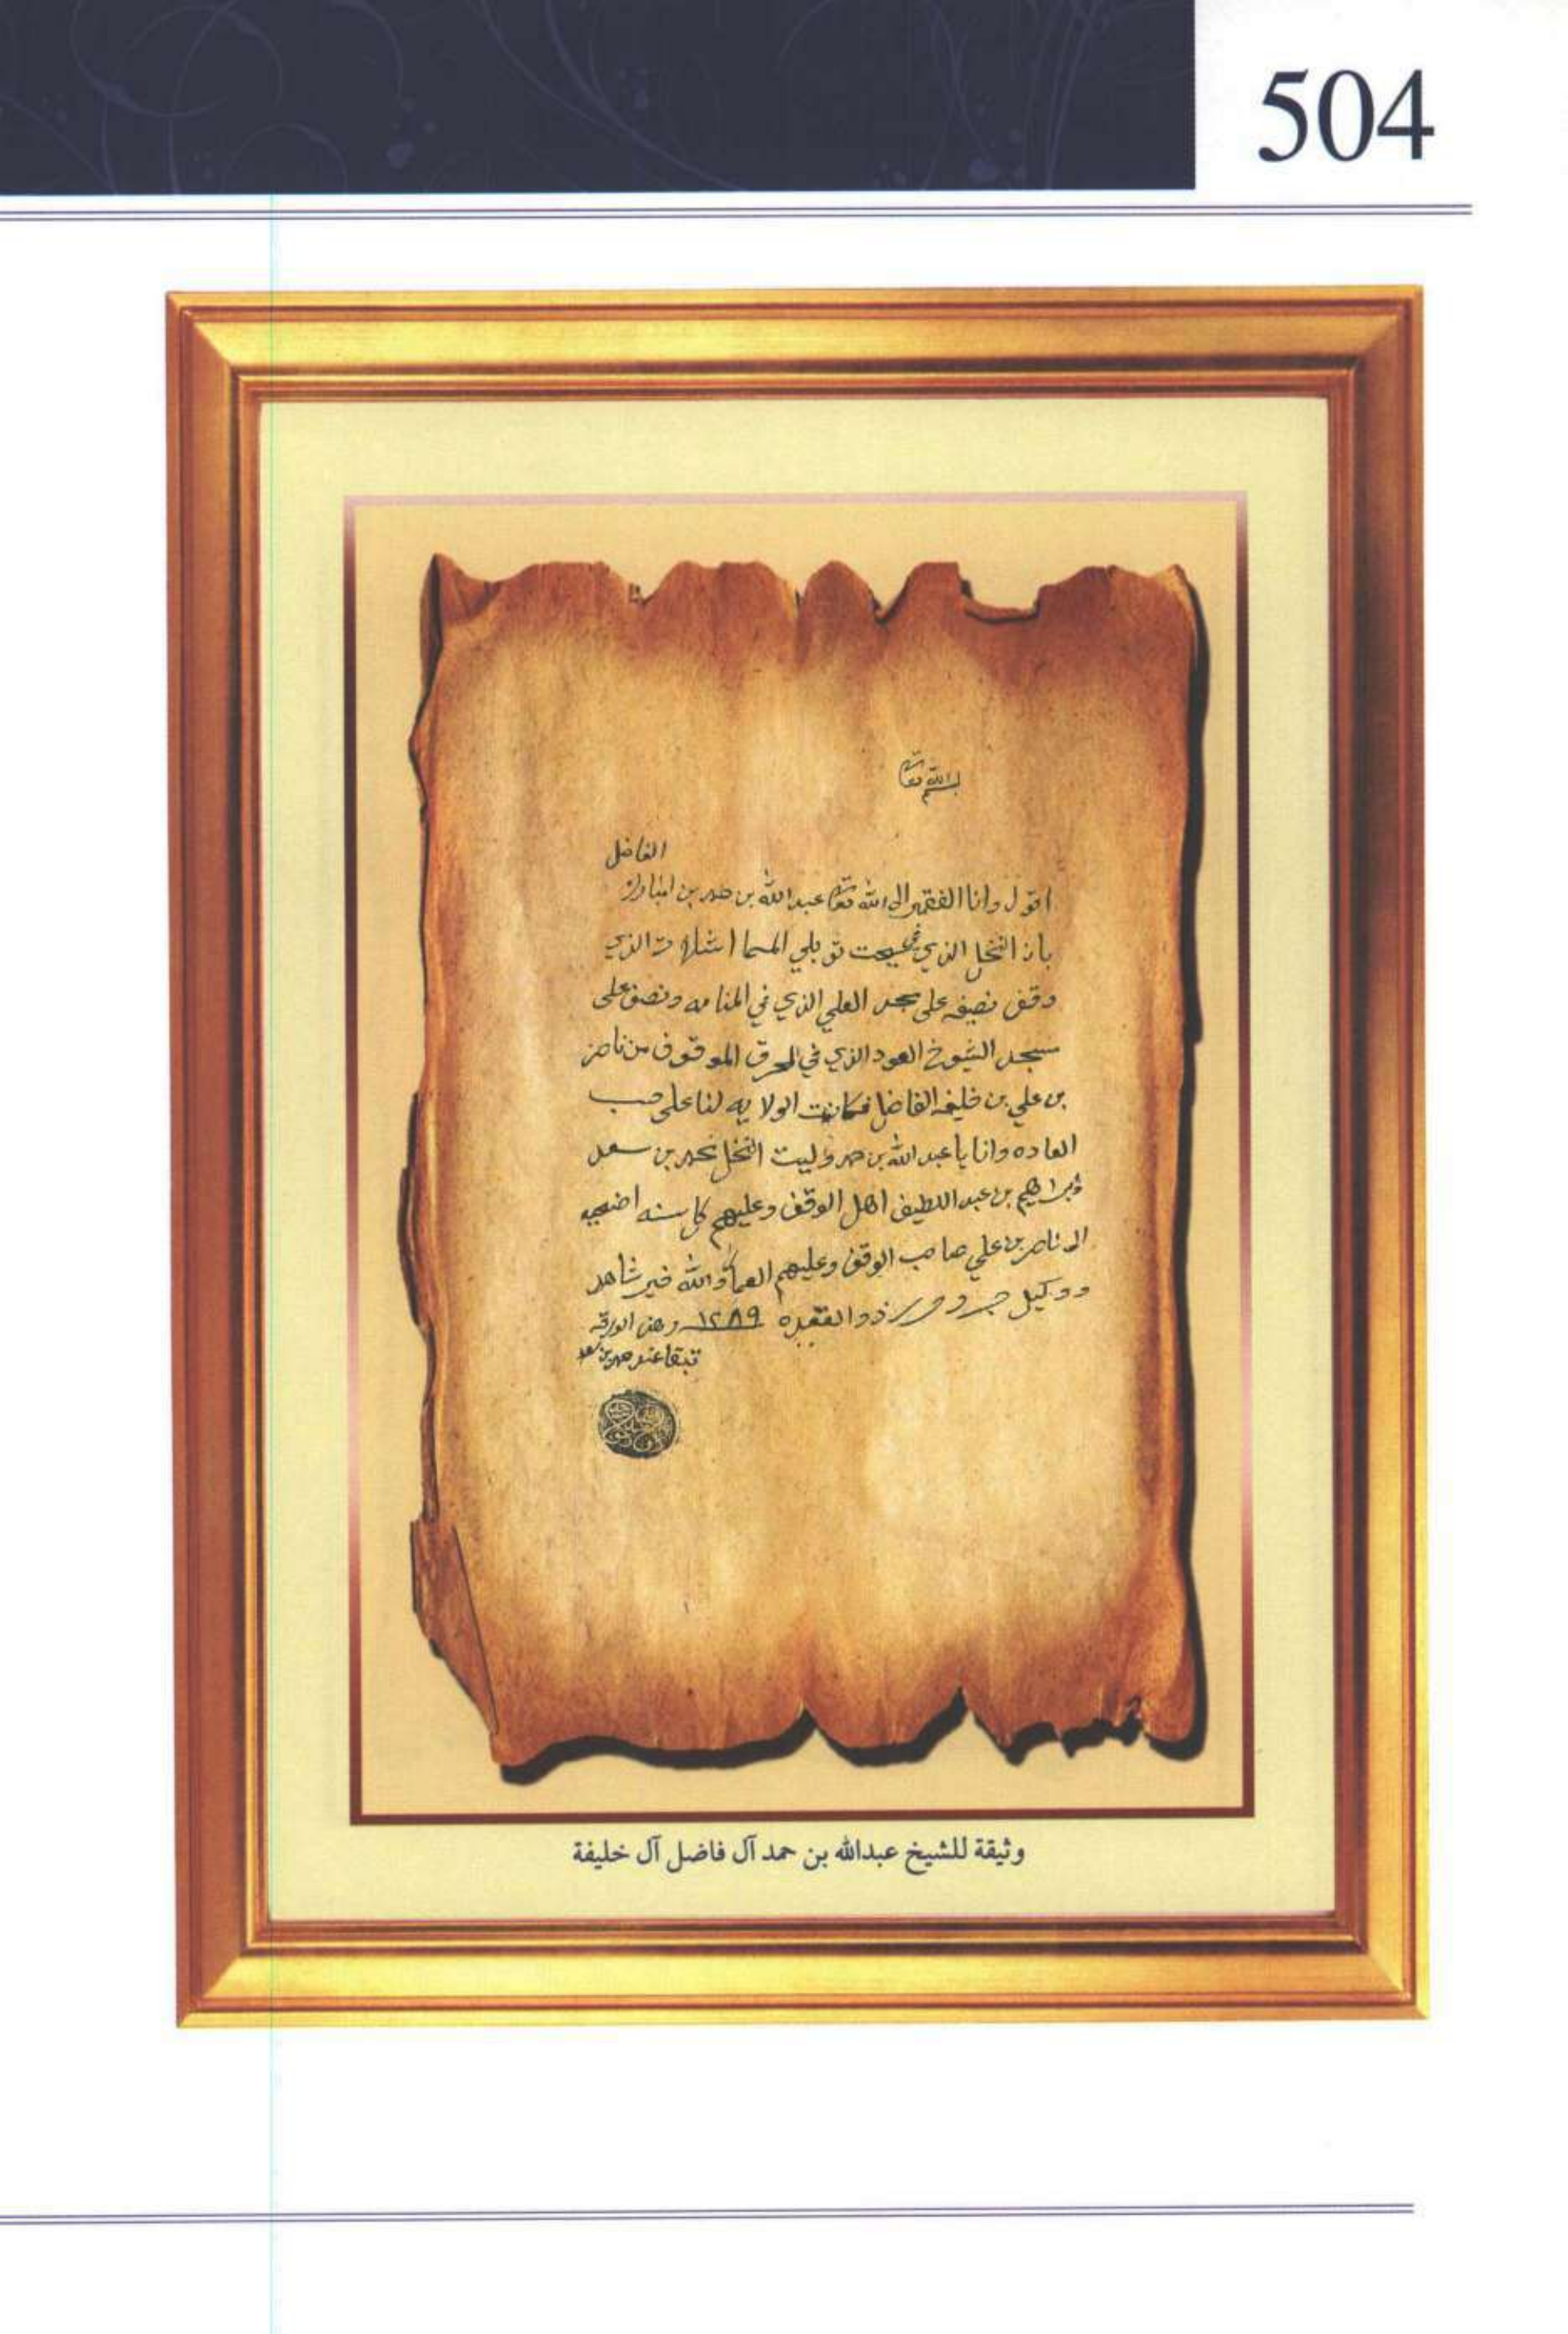 504
بسم الله تعالى
الفاضل
اقول وانا الفقير الى الله تعالى عبدالله بن حمد بن امبارك
بان النخل الذي في سيحت توبلي المسما الذي
وقف نصيفه على مسجد العلي الذي في المنامه ونصف على
مسجد الشيوخ العود الذي في المحرق الموقوف من ناصر
بن علي بن خليفه الفاضل فكانت الولايه لنا على حسب
العاده وانا يا عبدالله بن حمد وليت النخل محمد بن سعد
وابراهيم بن عبد اللطيف اهل الوقف وعليهم كل سنه اضحيه
الى ناصر بن علي صاحب الوقف وعليهم العمار والله خير شاهد
ووكيل جرر وحرر ذوالقعده ١٢٨٩ وهذه الورقه
تبقا عند محمد بن سعد
وثيقة للشيخ عبدالله بن حمد آل فاضل آل خليفة